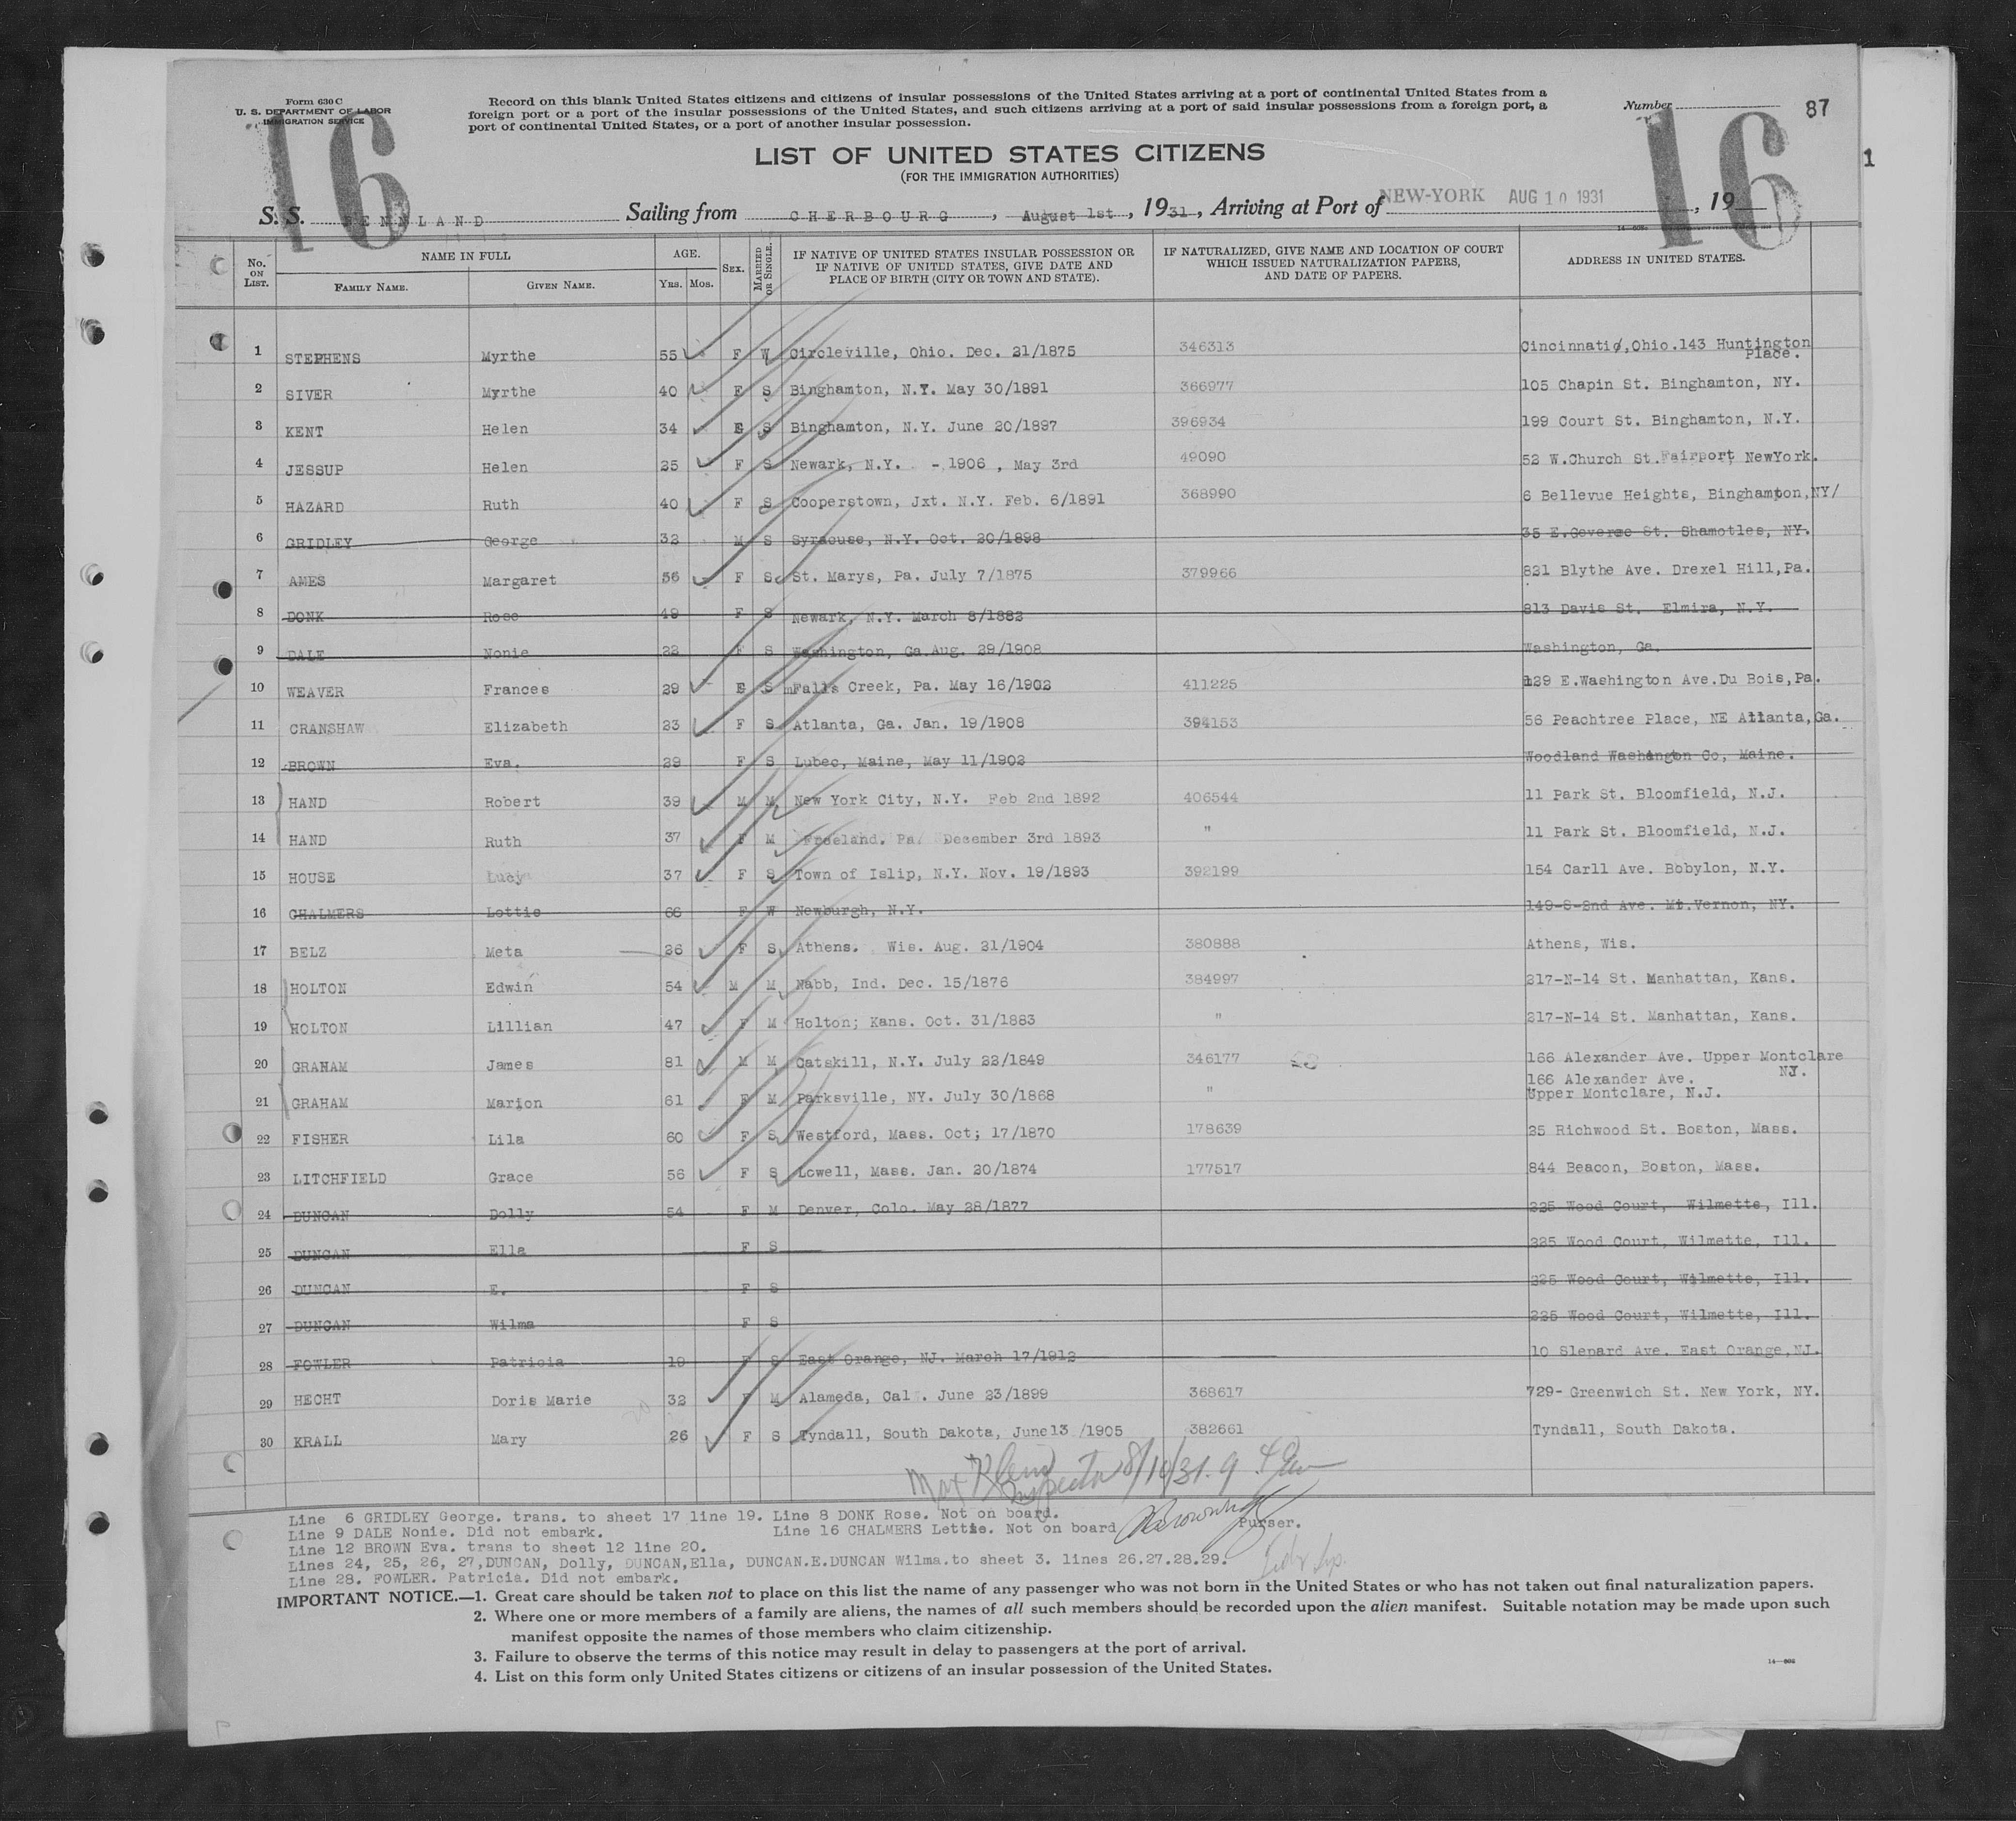 Form 630 C
U. S. DEPARTMENT OF LABOR
IMMIGRATION SERVICE
Record on this blank United States citizens and citizens of insular possessions of the United States arriving at a port of continental United States from a
foreign port or a port of the insular possessions of the United States, and such citizens arriving at a port of said insular possessions from a foreign port, a
port of continental United States, or a port of another insular possession.
Number
87
16
16
1
LIST OF UNITED STATES CITIZENS
(FOR THE IMMIGRATION AUTHORITIES)
S. S. PENNLAND Sailing from CHERBOURG, August 1st, 1931, Arriving at Port of NEW-YORK AUG 10 1931, 19
No. ON LIST. NAME IN FULL AGE. SEX. MARRIED OR SINGLE. IF NATIVE OF UNITED STATES INSULAR POSSESSION OR IF NATIVE OF UNITED STATES, GIVE DATE AND PLACE OF BIRTH (CITY OR TOWN AND STATE). IF NATURALIZED, GIVE NAME AND LOCATION OF COURT WHICH ISSUED NATURALIZATION PAPERS, AND DATE OF PAPERS. ADDRESS IN UNITED STATES.
FAMILY NAME. GIVEN NAME. YRS. MOS.
1 STEPHENS Myrthe 55 F W Circleville, Ohio. Dec. 21/1875 346313 Cincinnati, Ohio.143 Huntington Place.
2 SIVER Myrthe 40 F S Binghamton, N.Y. May 30/1891 366977 105 Chapin St. Binghamton, NY.
3 KENT Helen 34 F S Binghamton, N.Y. June 20/1897 396934 199 Court St. Binghamton, N.Y.
4 JESSUP Helen 25 F S Newark, N.Y. - 1906 , May 3rd 49090 52 W.Church St.Fairport, NewYork.
5 HAZARD Ruth 40 F S Cooperstown, Jxt. N.Y. Feb. 6/1891 368990 6 Bellevue Heights, Binghamton,NY/
6 GRIDLEY George 32 M S Syracuse, N.Y. Oct. 20/1898 35 E.Goverme St. Shamotles, NY.
7 AMES Margaret 56 F S St. Marys, Pa. July 7/1875 379966 821 Blythe Ave. Drexel Hill,Pa.
8 DONK Rose 49 F S Newark, N.Y. March 8/1882 813 Davis St. Elmira, N.Y.
9 DALE Nonie 22 F S Washington, Ga.Aug. 29/1908 Washington, Ga.
10 WEAVER Frances 29 F S Falls Creek, Pa. May 16/1902 411225 129 E.Washington Ave.Du Bois,Pa.
11 CRANSHAW Elizabeth 23 F S Atlanta, Ga. Jan. 19/1908 394153 56 Peachtree Place, NE Atlanta,Ga.
12 BROWN Eva. 29 F S Lubec, Maine, May 11/1902 Woodland Washington Co, Maine.
13 HAND Robert 39 M M New York City, N.Y. Feb 2nd 1892 406544 11 Park St. Bloomfield, N.J.
14 HAND Ruth 37 F M Freeland. Pa. December 3rd 1893 " 11 Park St. Bloomfield, N.J.
15 HOUSE Lucy 37 F S Town of Islip, N.Y. Nov. 19/1893 392199 154 Carll Ave. Bobylon, N.Y.
16 CHALMERS Lottie 66 F W Newburgh, N.Y. 149-S-2nd Ave. Mt.Vernon, NY.
17 BELZ Meta 26 F S Athens. Wis. Aug. 21/1904 380888 Athens, Wis.
18 HOLTON Edwin 54 M M Nabb, Ind. Dec. 15/1876 384997 217-N-14 St. Manhattan, Kans.
19 HOLTON Lillian 47 F M Holton; Kans. Oct. 31/1883 " 217-N-14 St. Manhattan, Kans.
20 GRAHAM James 81 M M Catskill, N.Y. July 22/1849 346177 166 Alexander Ave. Upper Montclare NJ.
21 GRAHAM Marion 61 F M Parksville, NY. July 30/1868 " 166 Alexander Ave. Upper Montclare, N.J.
22 FISHER Lila 60 F S Westford, Mass. Oct; 17/1870 178639 25 Richwood St. Boston, Mass.
23 LITCHFIELD Grace 56 F S Lowell, Mass. Jan. 20/1874 177517 844 Beacon, Boston, Mass.
24 DUNCAN Dolly 54 F M Denver, Colo. May 28/1877 225 Wood Court, Wilmette, Ill.
25 DUNCAN Ella F S 225 Wood Court, Wilmette, Ill.
26 DUNCAN E. F S 225 Wood Court, Wilmette, Ill.
27 DUNCAN Wilma F S 225 Wood Court, Wilmette, Ill.
28 FOWLER Patricia 19 F S East Orange, NJ. March 17/1912 10 Slepard Ave. East Orange,NJ.
29 HECHT Doris Marie 32 F M Alameda, Cal. June 23/1899 368617 729- Greenwich St. New York, NY.
30 KRALL Mary 26 F S Tyndall, South Dakota, June13 /1905 382661 Tyndall, South Dakota.
Max
Inspector 8/10/31. 9
Line 6 GRIDLEY George. trans. to sheet 17 line 19. Line 8 DONK Rose. Not on board.
Line 9 DALE Nonie. Did not embark. Line 16 CHALMERS Lettie. Not on board Purser.
Line 12 BROWN Eva. trans to sheet 12 line 20.
Lines 24, 25, 26, 27,DUNCAN, Dolly, DUNCAN,Ella, DUNCAN.E.DUNCAN Wilma.to sheet 3. lines 26.27.28.29.
Line 28. FOWLER. Patricia. Did not embark.
IMPORTANT NOTICE.—1. Great care should be taken not to place on this list the name of any passenger who was not born in the United States or who has not taken out final naturalization papers.
2. Where one or more members of a family are aliens, the names of all such members should be recorded upon the alien manifest. Suitable notation may be made upon such
manifest opposite the names of those members who claim citizenship.
3. Failure to observe the terms of this notice may result in delay to passengers at the port of arrival.
4. List on this form only United States citizens or citizens of an insular possession of the United States.